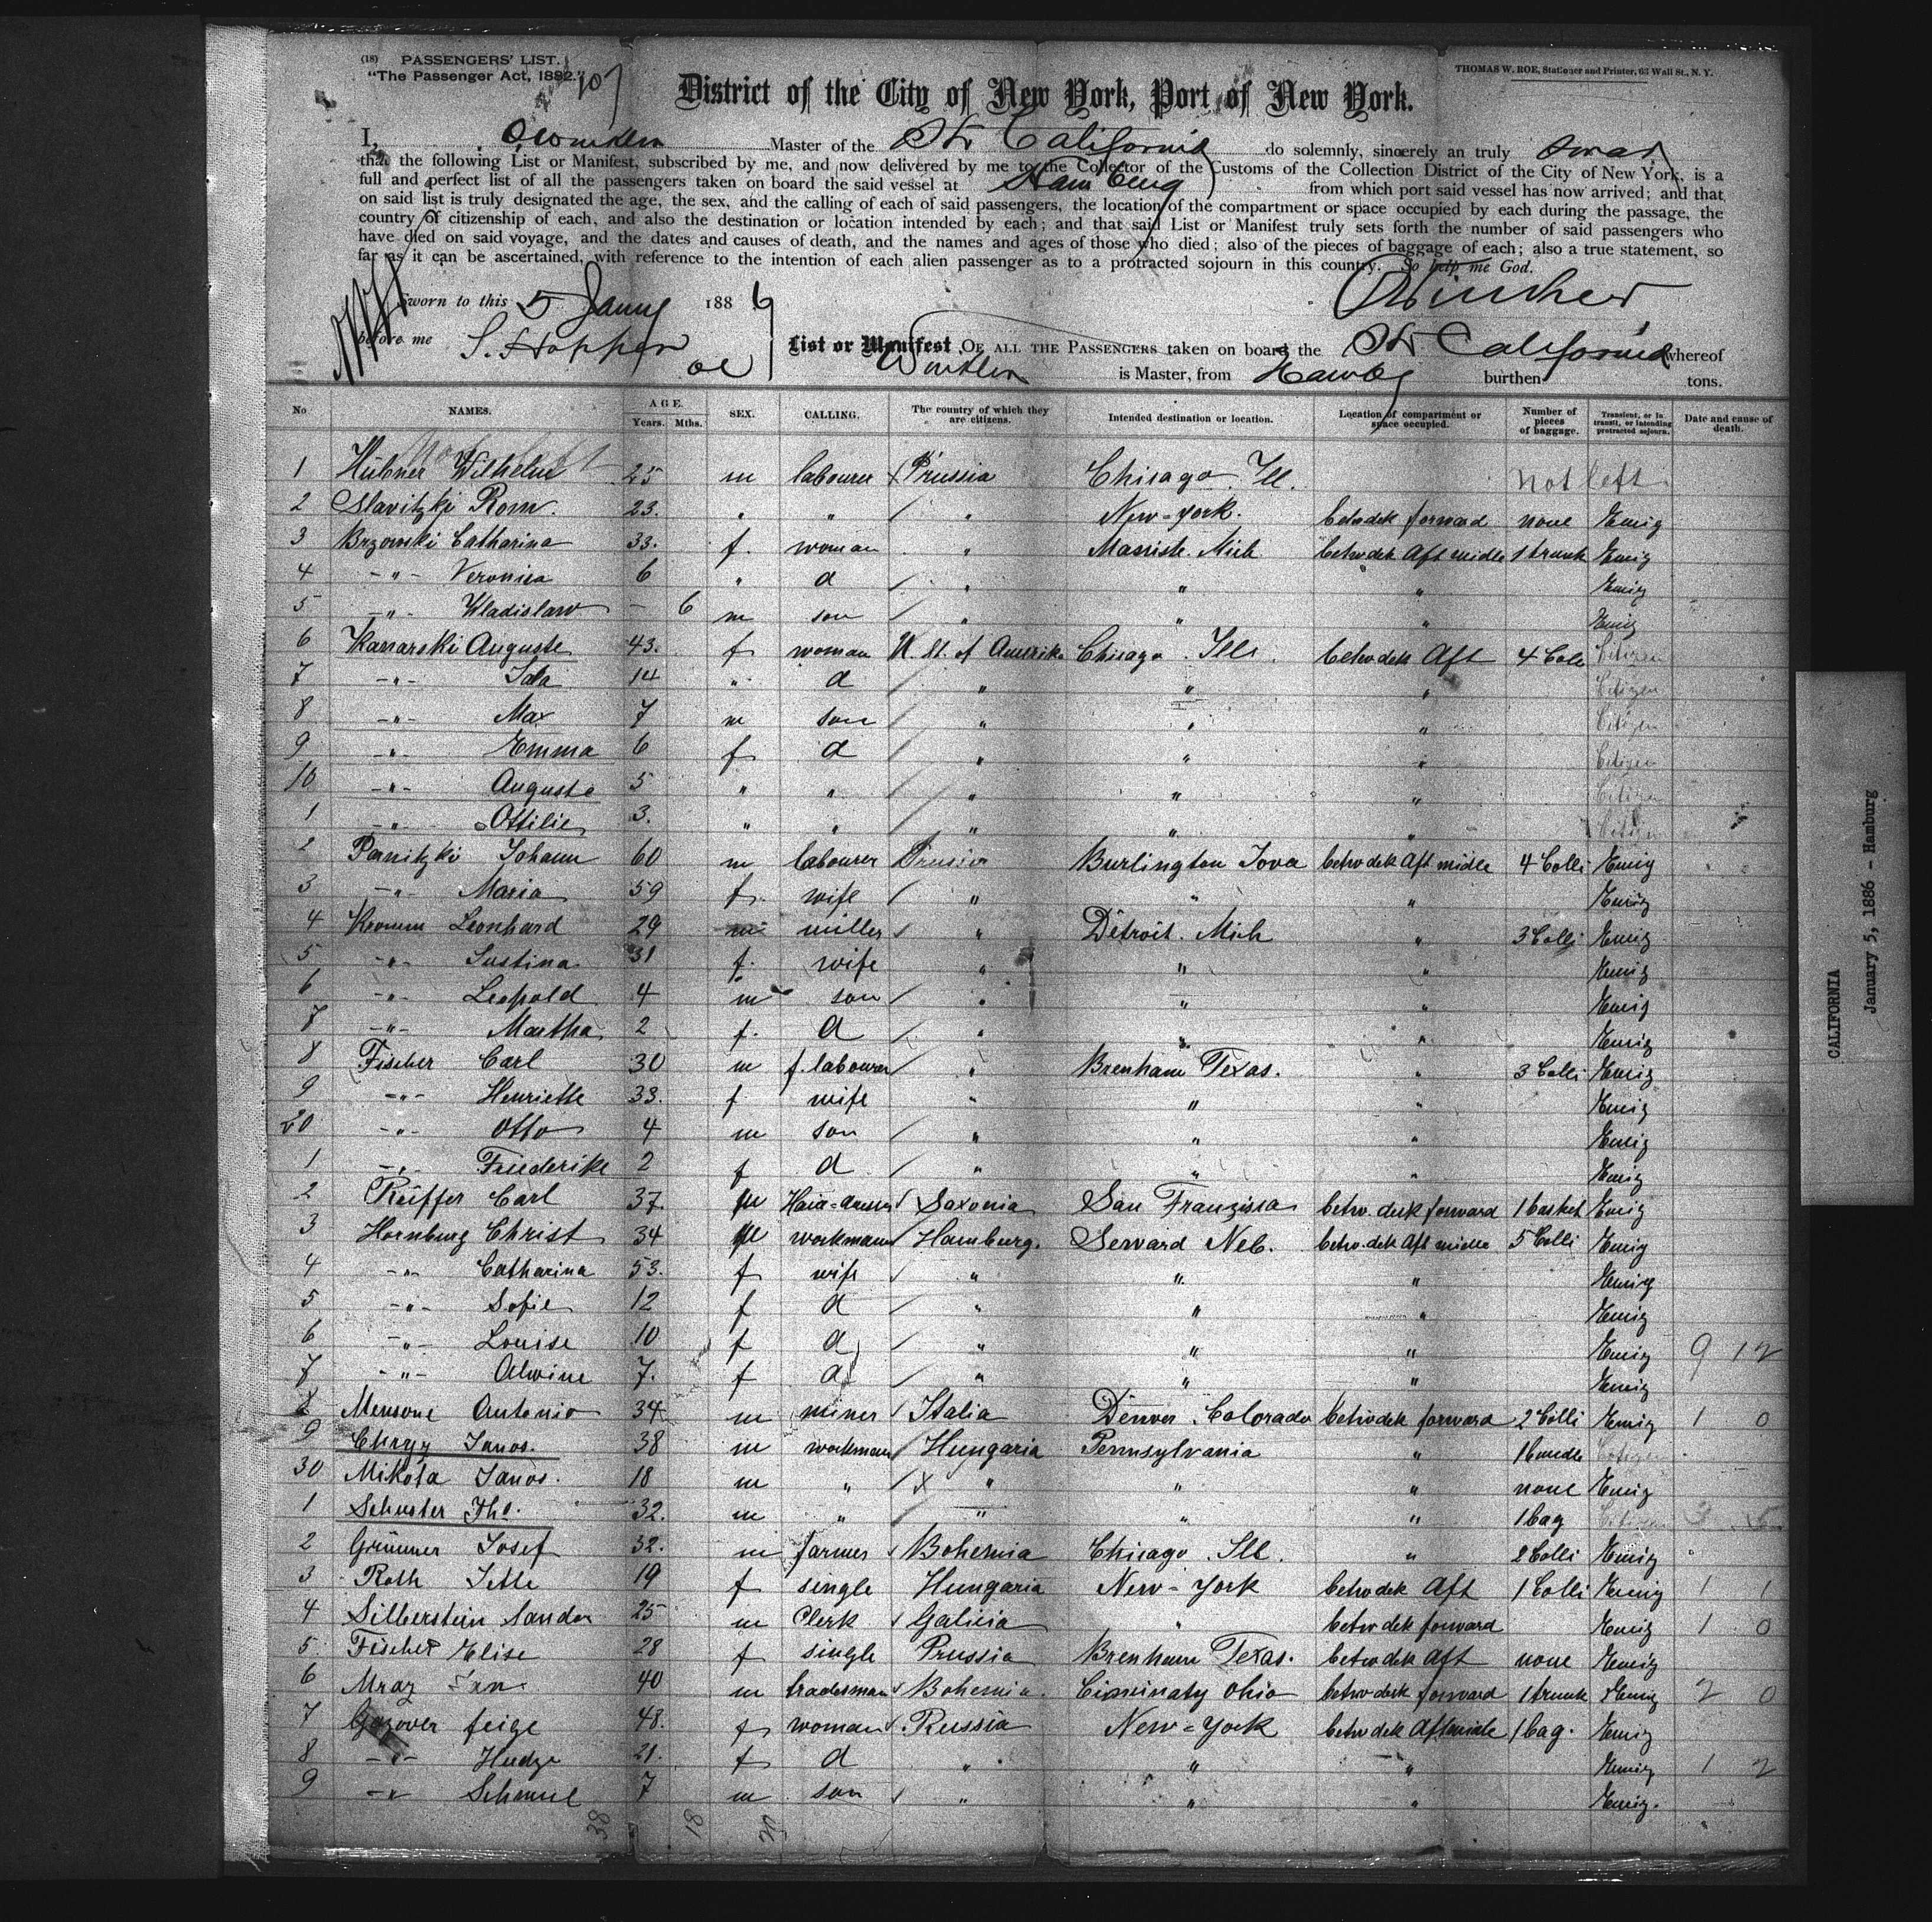 (18) PASSENGERS' LIST.
"The Passenger Act, 1882."
THOMAS W. ROE, Stationer and Printer, 63 Wall St., N. Y.
District of the City of New York, Port of New York.
I, Winkler Master of the Str California do solemnly, sincerely an truly swear
that the following List or Manifest, subscribed by me, and now delivered by me to the Collector of the Customs of the Collection District of the City of New York, is a
full and perfect list of all the passengers taken on board the said vessel at Hamburg from which port said vessel has now arrived; and that
on said list is truly designated the age, the sex, and the calling of each of said passengers, the location of the compartment or space occupied by each during the passage, the
country of citizenship of each, and also the destination or location intended by each; and that said List or Manifest truly sets forth the number of said passengers who
have died on said voyage, and the dates and causes of death, and the names and ages of those who died; also of the pieces of baggage of each; also a true statement, so
far as it can be ascertained, with reference to the intention of each alien passenger as to a protracted sojourn in this country. So help me God.
Winkler
Sworn to this 5 Jany 1886
before me S. Hopper
List or Manifest, OF ALL THE PASSENGERS taken on board the Str California whereof
Winkler is Master, from Hambg burthen tons.
No NAMES. AGE. Years. Mths. SEX. CALLING. The country of which they are citizens. Intended destination or location. Location of compartment or space occupied. Number of pieces of baggage. Transient, or in transit, or intending protracted sojourn. Date and cause of death.
not left
1 Hübner Wilhelm 25 m labourer Prussia Chicago Ill. not left
2 Slavitzki Rom. 23. " " " New-york. betwdek forward none Emig
3 Brzowski Catharina 33. f. woman " Mich betwdek Aft midle 1 trunk Emig
4 -"- Veronica 6 " d " " " Emig
5 -"- Wladislaw - 6 m son " " " Emig
6 Kanarski Auguste 43. f woman U. St. of Amerika Chicago Ills. betwdek Aft 4 Coll Citizen
7 -"- Ida 14 " d " " " Citizen
8 -"- Max 7 m son " " " Citizen
9 -"- Emma 6 f d " " " Citizen
10 -"- Auguste 5 " " " " " Citizen
1 -"- Ottilie 3. " " " " " Citizen
2 Panitzki Johann 60 m labourer Prussia Burlington Iova betwdek Aft midle 4 Colli Emig
3 -"- Maria 59 f. wife " " " Emig
4 Leonhard 29 m miller " Détroit. Mich " 3 Colli Emig
5 -"- Justina 31 f. wife " " " Emig
6 -"- Leopold 4 m son " " " Emig
7 -"- Martha 2 f. d " " " Emig
8 Fischer Carl 30 m f. labourer " Brenham Texas. " 3 Colli Emig
9 -"- Henriette 33. f wife " " " Emig
20 -"- Otto 4 m son " " " Emig
1 -"- Friederike 2 f d " " " Emig
2 Carl 37. m Hair-dresser Saxonia San Franzisca betw. dek forward 1 basket Emig
3 Hornburg Christ 34 m workmann Hamburg. Serward Neb. betw. dek Aft midle 5 Colli Emig
4 -"- Catharina 53. f wife " " " Emig
5 -"- Sofie 12 f d " " " Emig
6 -"- Louise 10 f d " " " Emig 9 12
7 -"- Alwine 7. f d " " " Emig
8 Mensoni Antonio 34 m miner Italia Denver Colorado betwdek forward 2 Colli Emig 1 0
9 Janos. 38 m workmann Hungaria Pennsylvania " 1 bundle Citizen
30 Mikola Janos. 18 m " x " " " none Emig
1 Schuster Tho. 32. m " " " " 1 bag Citizen 3 5
2 Grünner Josef 32. m farmer Bohemia Chicago Ill. " 2 Colli Emig
3 Roth Jette 19 f single Hungaria New-york betwdek Aft 1 Colli Emig 1 1
4 Silberstein Sandor 25 m Clerk Galicia " betwdek forward Emig 1 0
5 Fischer Elise 28 f single Prussia Brenham Texas. betwdek Aft none Emig
6 Mraz Jan 40 m tradesman Bohemia. Cipninaty Ohio betwdek forward 1 trunk Emig 2 0
7 feige 48. f woman Russia New-york betwdek Aft midle 1 bag. Emig
8 -"- Hudge 21. f d " " " Emig 1 2
9 -"- Schmul 7 m son " " " Emig.
38 18 20
CALIFORNIA
January 5, 1886 - Hamburg